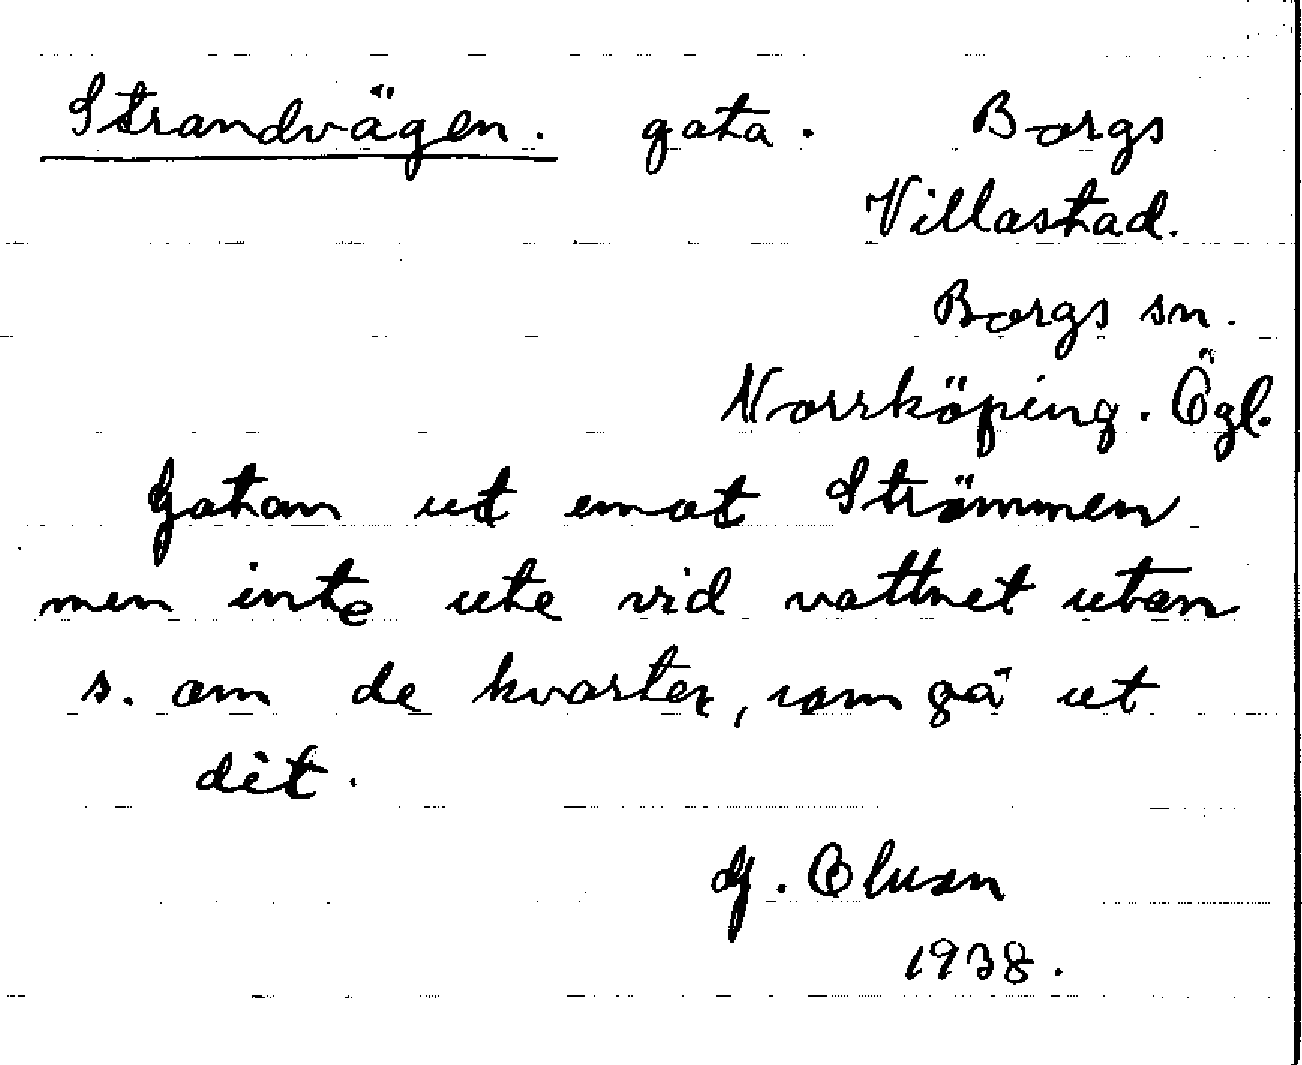 Strandvägen. gata. Borgs
Villastad.
Borgs sn.
Norrköping. Ögl.
Gatan ut emot Strömmen
men inte ute vid vattnet utan
s. om de kvarter, som gå ut
dit.
G. Olsson
1938.